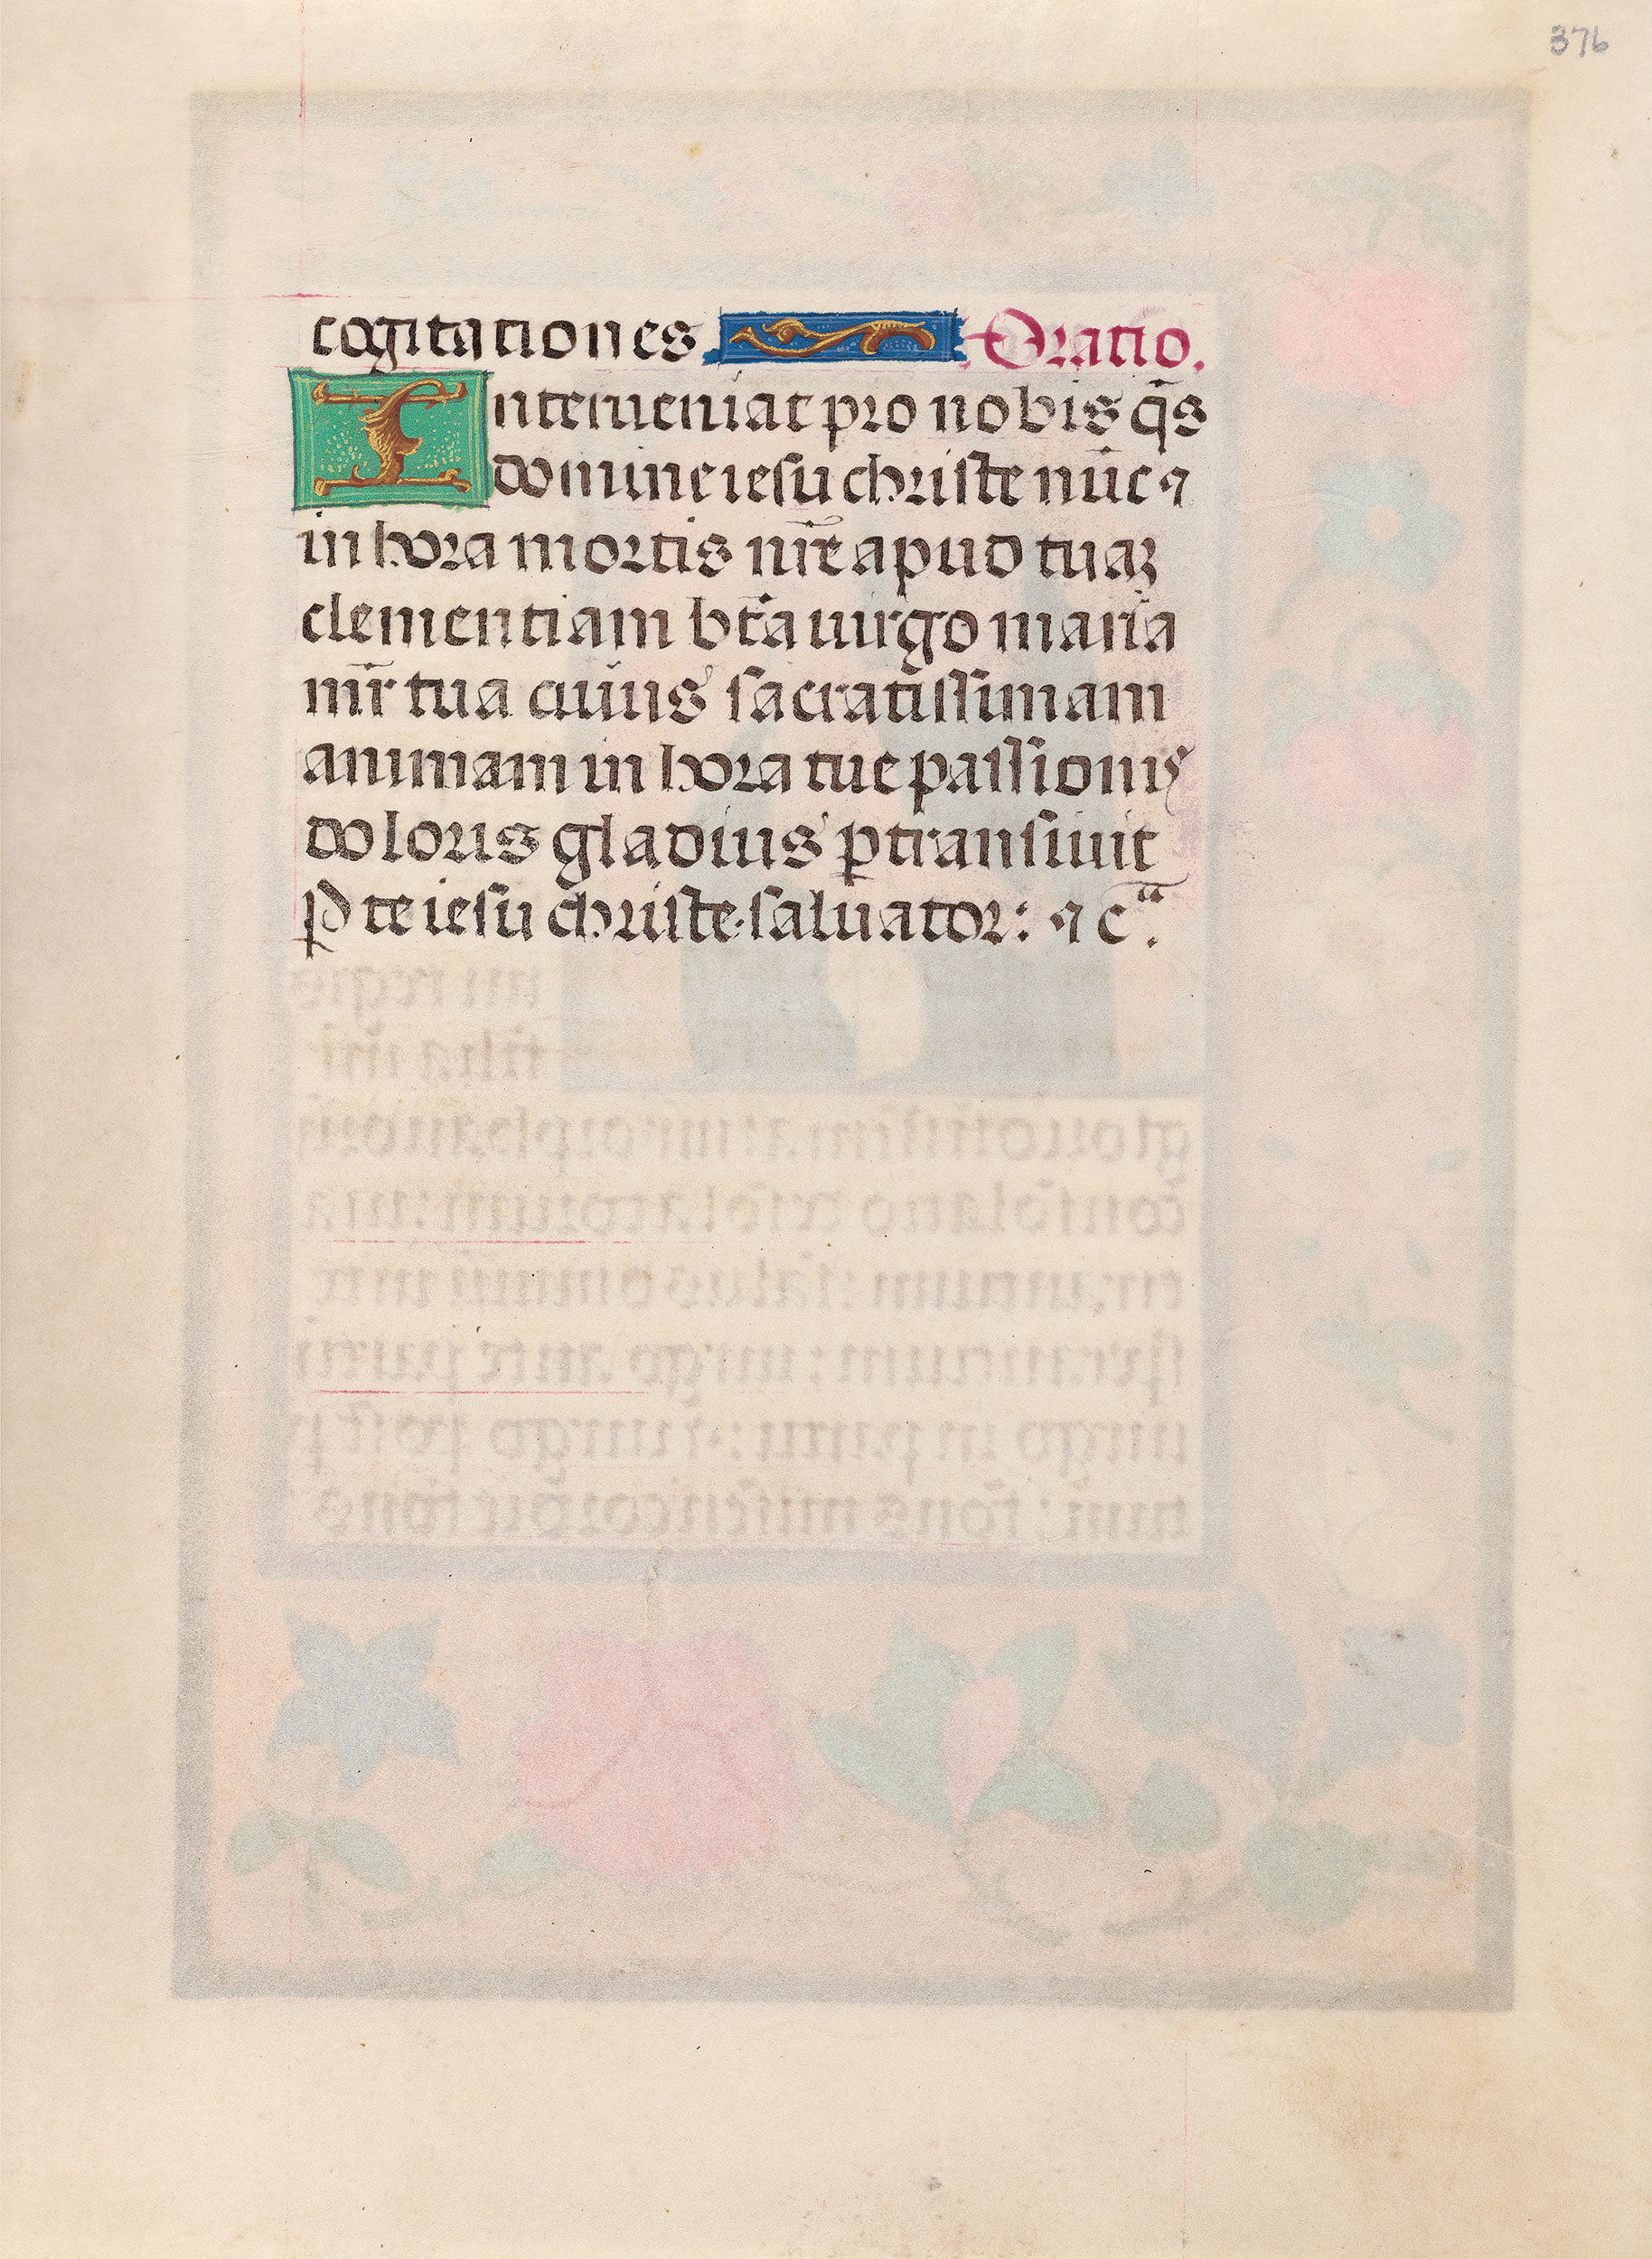 376
cogitationes Oratio.
Interueniat pro nobis q̄s
domine iesu christe nūc ⁊
in hora mortis nr̄e apud tuaꝫ
clementiam bt̄a uirgo maria
mr̄ tua cuius sacratissimam
animam in hora tue passionis
doloris gladius ꝑtransiuit
ꝑ te iesu christe saluator: ⁊ cᵃ.